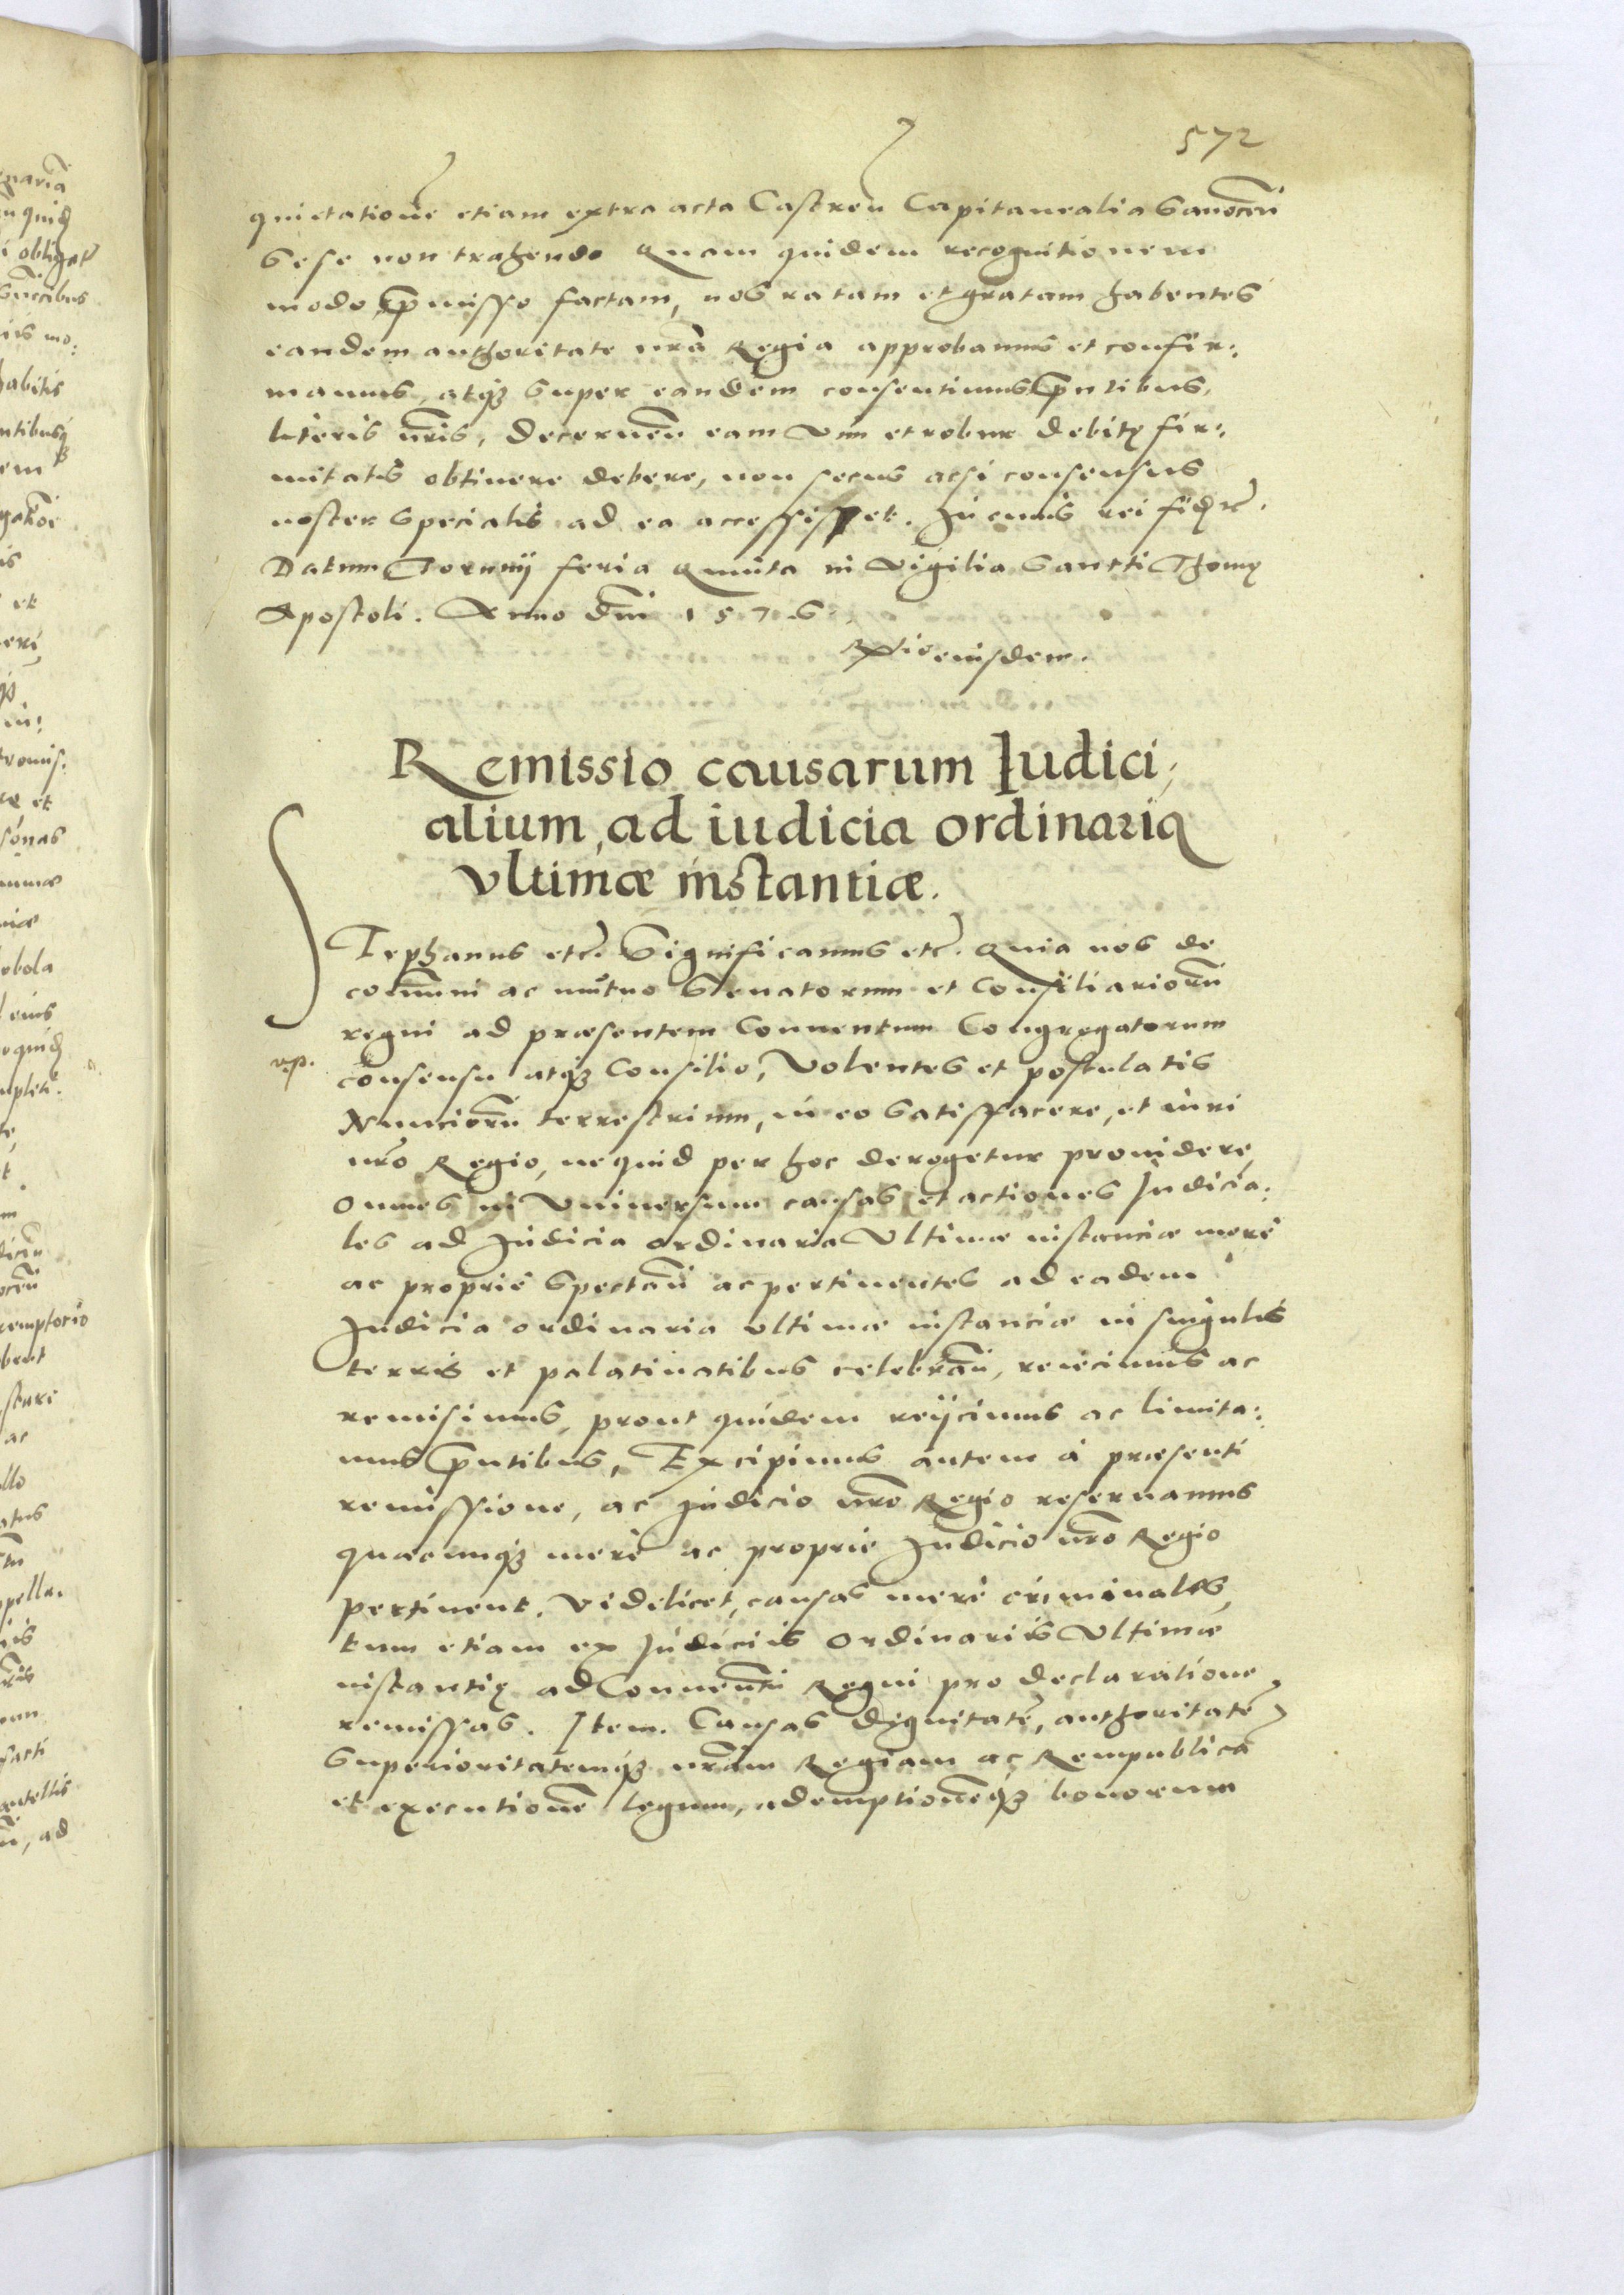 572
quietationē etiam extra acta Castreñ Capitanealia Sanoceñ
sese non trahendo Quam quidem recognitionem
modo p̄misso factam, nos ratam et gratam habentes
eandem authoritate nrā Regia approbamus et confir:
mamus, atq; super eandem consentimus p̄ntibus,
literis nr̄is, decerneñ eam vim et robur debitę fir:
mitatis obtinere debere, non secus acsi consensus
noster specialis ad ea accessisset. In cuius rei fidem.
Datum Torunij feria Quinta in vigilia Sancti Thomę
Apostoli. Anno Dni 1576.
Rxtio eiusdem.
Remissio causarum Iudici,
alium, ad iudicia ordinaria
vltimæ instantiæ.
STephanus etc. Significamus etc. Quia nos de
com̄uni ac mutuo Senatorum et Consiliariorū
regni ad præsentem Conuentum Congregatorum
consensu atq; Consilio, Volentes et postulatis
Nunciorū terrestrium, in eo satisfacere, et iuri
nro Regio, nequid per hoc derogetur prouidere,
omnes in vniuersum causas et actiones Judicia:
les ad Judicia ordinaria Vltimæ instanciæ merè
ac propriè spectañ ac pertinentes ad eadem
Judicia ordinaria vltimæ instanciæ in singulis
terris et palatinatibus celebrañ, reiecimus ac
remisimus, prout quidem reijcimus ac limita:
mus p̄ntibus, Excipimus autem à præsenti
remissione, ac judicio nro Regio reseruamus
quæcunq; merè ac propriè Judicio nro Regio
pertinent. Videlicet, causas merè criminales,
tum etiam ex Judiciis Ordinariis Vltimæ
instantię ad Conuentū Regni pro declaratione
remissas. Item. Causas dignitatē, authoritatē
Superioritatemq; nram Regiam ac Rempublicā
et executionē legum, ademptionēq; bonorum